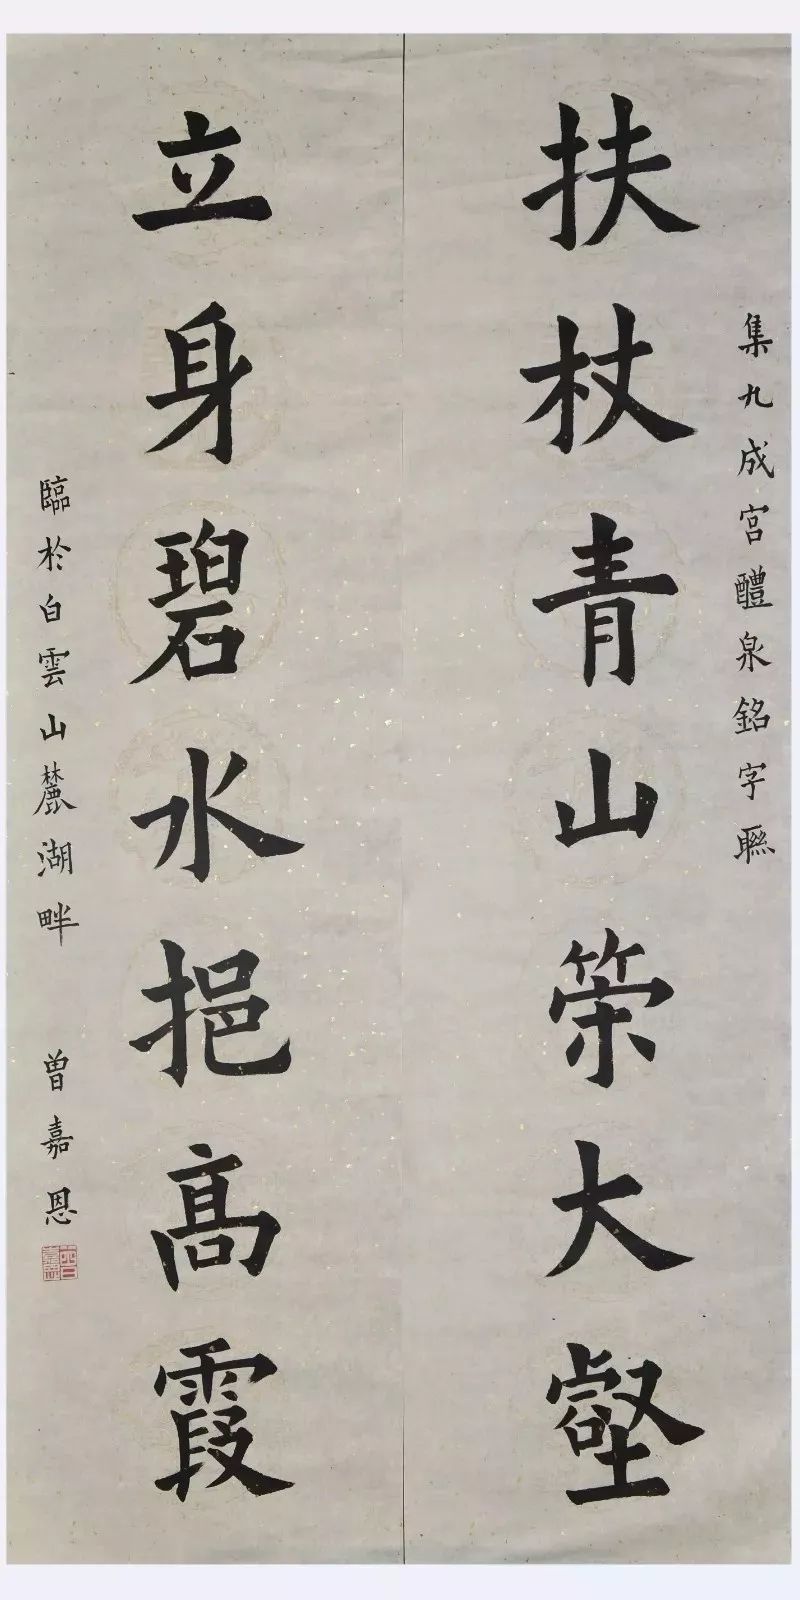 集九成宮醴泉銘字聯
扶杖青山策大壑
立身碧水挹髙霞
臨於白雲山麓湖畔 曾嘉恩